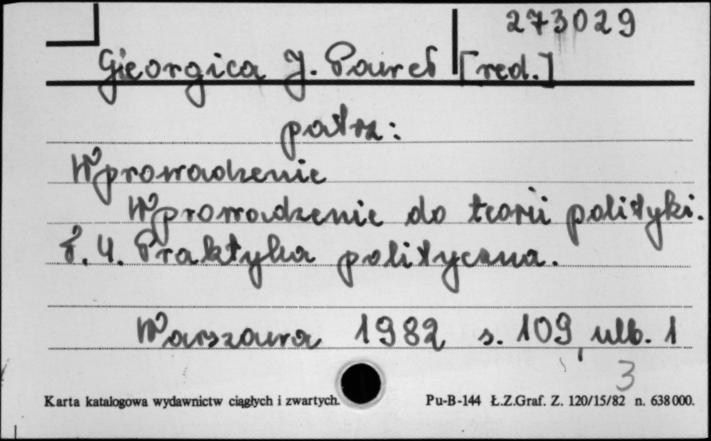 273029
Gieorgica J. Paweł [red.]
patrz:
Wprowadzenie
Wprowadzenie do teorii polityki.
T. 4. Praktyka polityczna.
Warszawa 1982 s. 109, ulb. 1
3
Karta katalogowa wydawnictw ciągłych i zwartych. Pu-B-144 Ł.Z.Graf. Z. 120/15/82 n. 638000.